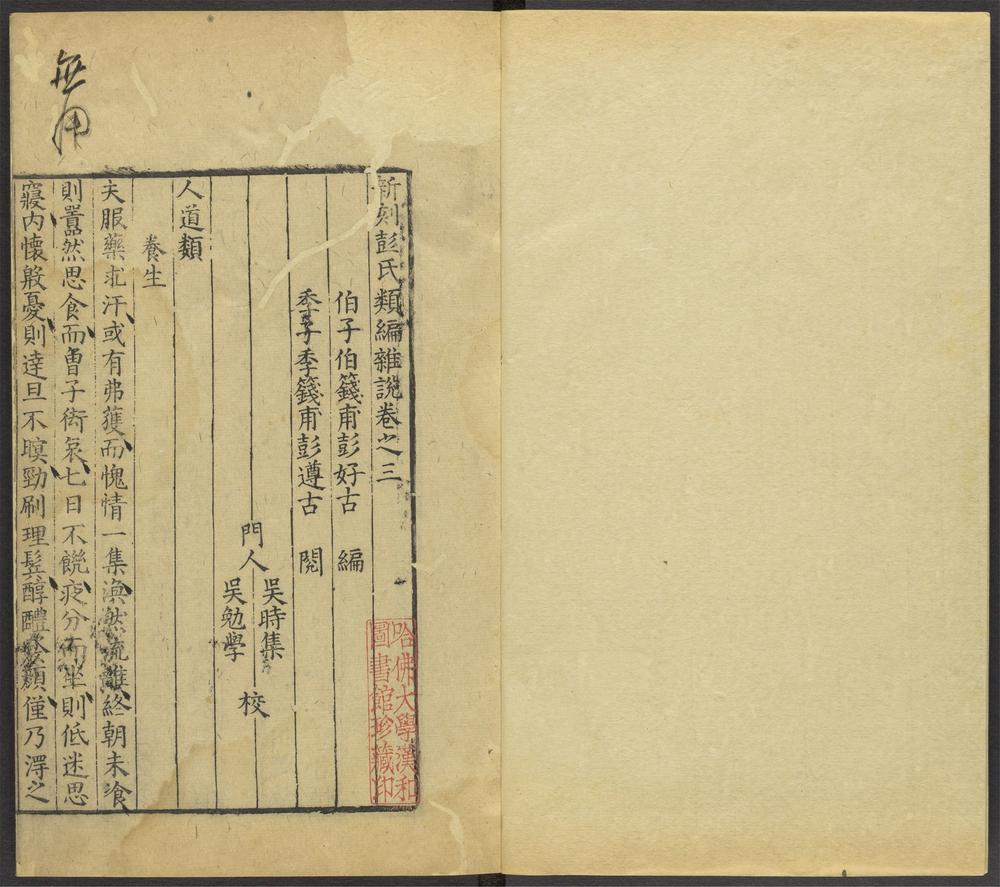 新刻彭氏類編雜說卷之三
伯子伯籛甫彭好古 編
季子季籛甫彭遵古 閱
門人 吳時集 吳勉學 校
人道類
養生
夫服藥求汗或有弗獲而愧情一集渙然流離終朝未飡
則囂然思食而曾子銜哀七日不饑夜分而坐則低迷思
寢內懷殷憂則達旦不瞑勁刷理髩醇醴發顏僅乃淂之
無用
哈佛大學漢和
圖書館珍藏印